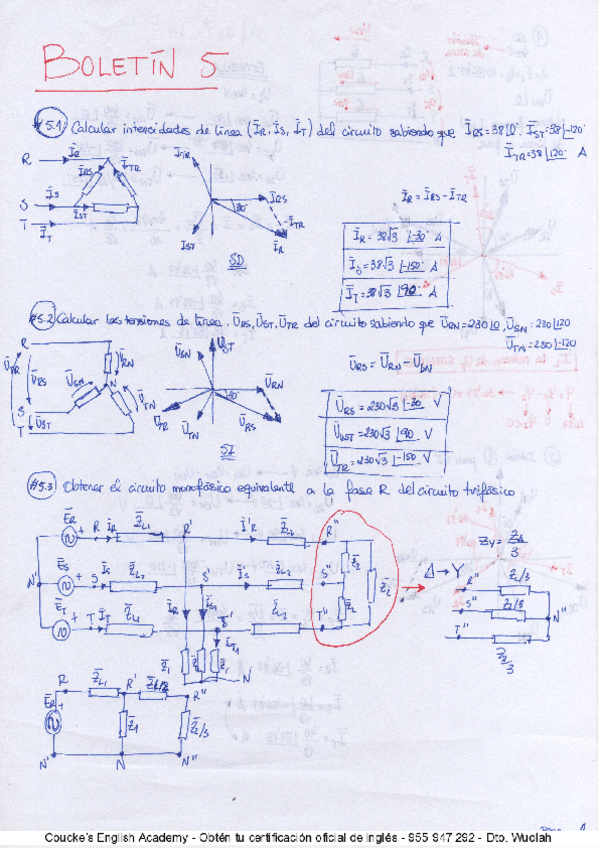 BOLETÍN 5
#5.1 Calcular intensidades de línea (ĪR, ĪS, ĪT) del circuito sabiendo que ĪRS=38∠0 ĪST=38∠-120
ĪTR=38∠120 A
R ĪR ĪTR
ĪRS ĪTR
S ĪS
T ĪST
ĪT
ĪRS
30°
-ĪTR
ĪST
ĪR
SD
ĪR = ĪRS - ĪTR
ĪR = 38√3 ∠-30 A
ĪS = 38√3 ∠-150 A
ĪT = 38√3 ∠90 A
#5.2 Calcular las tensiones de línea ŪRS, ŪST, ŪTR del circuito sabiendo que ŪRN=230∠0, ŪSN=230∠120
ŪTN=230∠-120
R
ŪTR ŪRS ŪRN
ŪSN N
S ŪTN
T ŪST
ŪSN ŪST
ŪRN
30°
ŪTR ŪTN ŪRS
SI
ŪRS = ŪRN - ŪSN
ŪRS = 230√3 ∠-30 V
ŪST = 230√3 ∠90 V
ŪTR = 230√3 ∠-150 V
#5.3 Obtener el circuito monofásico equivalente a la fase R del circuito trifásico
ĒR R ĪR Z̄L1 R' Ī'R Z̄L2 R"
ĒS S ĪS Z̄L1 S' Z̄L2 S" Z̄2 Z̄2
N'
ĒT T ĪT Z̄L1 T' Z̄L2 T" Z̄2
Z̄1 Z̄1 Z̄1 N
Z̄Y = Z̄Δ/3
Δ→Y
R" Z̄2/3
S" Z̄2/3 N"
T" Z̄2/3
R Z̄L1 R' Z̄L2 R"
ĒR Z̄1 Z̄2/3
N' N N"
Coucke's English Academy - Obtén tu certificación oficial de inglés - 955 947 292 - Dto. Wuolah